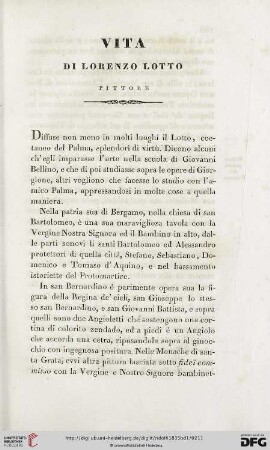 VITA
DI LORENZO LOTTO
PITTORE
Diffuse non meno in molti luoghi il Lotto, coe-
taneo del Palma, splendori di virtù. Dicono alcuni
ch'egli imparasse l'arte nella scuola di Giovanni
Bellino, e che di poi studiasse sopra le opere di Gior-
gione, altri vogliono che facesse lo studio con l'a-
mico Palma, appressandosi in molte cose a quella
maniera.
Nella patria sua di Bergamo, nella chiesa di san
Bartolomeo, è una sua maravigliosa tavola con la
Vergine Nostra Signora ed il Bambino in alto, dal-
le parti sonovi li santi Bartolomeo ed Alessandro
protettori di quella città, Stefano, Sebastiano, Do-
menico e Tomaso d'Aquino, e nel bassamento
istoriette del Protomartire.
In san Bernardino è parimente opera sua la fi-
gura della Regina de' cieli, san Giuseppe lo stes-
so san Bernardino, e san Giovanni Battista, e sopra
quella sono due Angioletti che sostengono una cor-
tina di colorito zendado, ed a piedi è un Angiolo
che accorda una cetra, riposandola sopra al ginoc-
chio con ingegnosa positura. Nelle Monache di san-
ta Grata, evvi altra pittura lasciata sotto fidei com-
misso con la Vergine e Nostro Signore bambinet-
http://digi.ub.uni-heidelberg.de/diglit/ridolfi1835bd1/0211
© Universitätsbibliothek Heidelberg
UNIVERSITÄTS-
BIBLIOTHEK
HEIDELBERG
gefördert durch die
DFG